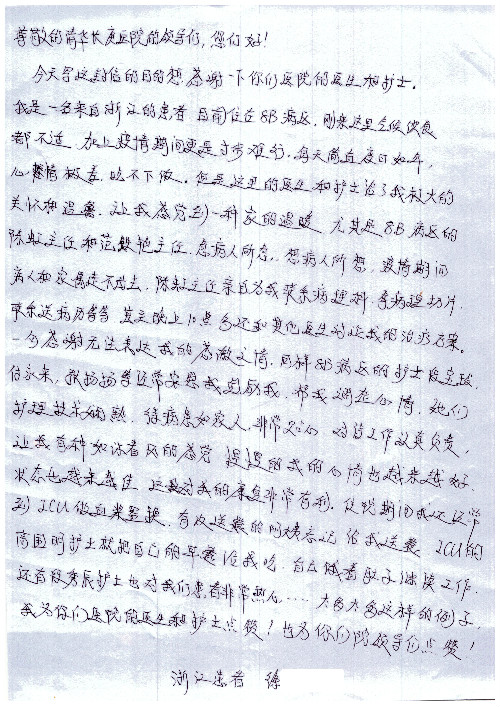 尊敬的清华长庚医院的领导们，您们好！
今天写这封信的目的想感谢一下你们医院的医生和护士。
我是一名来自浙江的患者 目前住在8B病区，刚来这里气候饮食
都不适，加上疫情期间更是寸步难行，每天简直度日如年，
心情极差，吃不下饭。但是这里的医生和护士给了我极大的
关怀和温馨，让我感觉到一种家的温暖 尤其是8B病区的
陈虹主任和范 主任，急病人所急，想病人所想，疫情期间
病人和家属走不出去，陈虹主任亲自为我联系病理科，查病理切片，
联系送病历等等 甚至晚上10点多还和其他医生讨论我的治疗方案。
一句感谢无法表达我的感激之情，同样8B病区的护士段
护理技术娴熟，待病患如家人，非常贴心 对待工作认真负责，
让我有种如沐春风的感觉 慢慢的我的心情也越来越好
状态也越来越佳 这对我的康复非常有利，住院期间我还经常
到ICU做血 ，有次送餐的阿姨忘记给我送餐 ICU的
护士就把自己的早餐给我吃，自己饿着肚子继续工作，
还有 护士也对我们患者非常热心……太多太多这样的例子
我为你们医院的医生和护士点赞！也为你们院领导们点赞！
浙江患者 徐